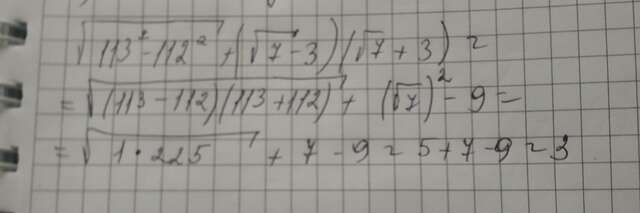 √(113²-112²) + (√7-3)(√7+3) =
= √((113-112)(113+112)) + (√7)² - 9 =
= √(1·225) + 7 - 9 = 5+7-9 = 3